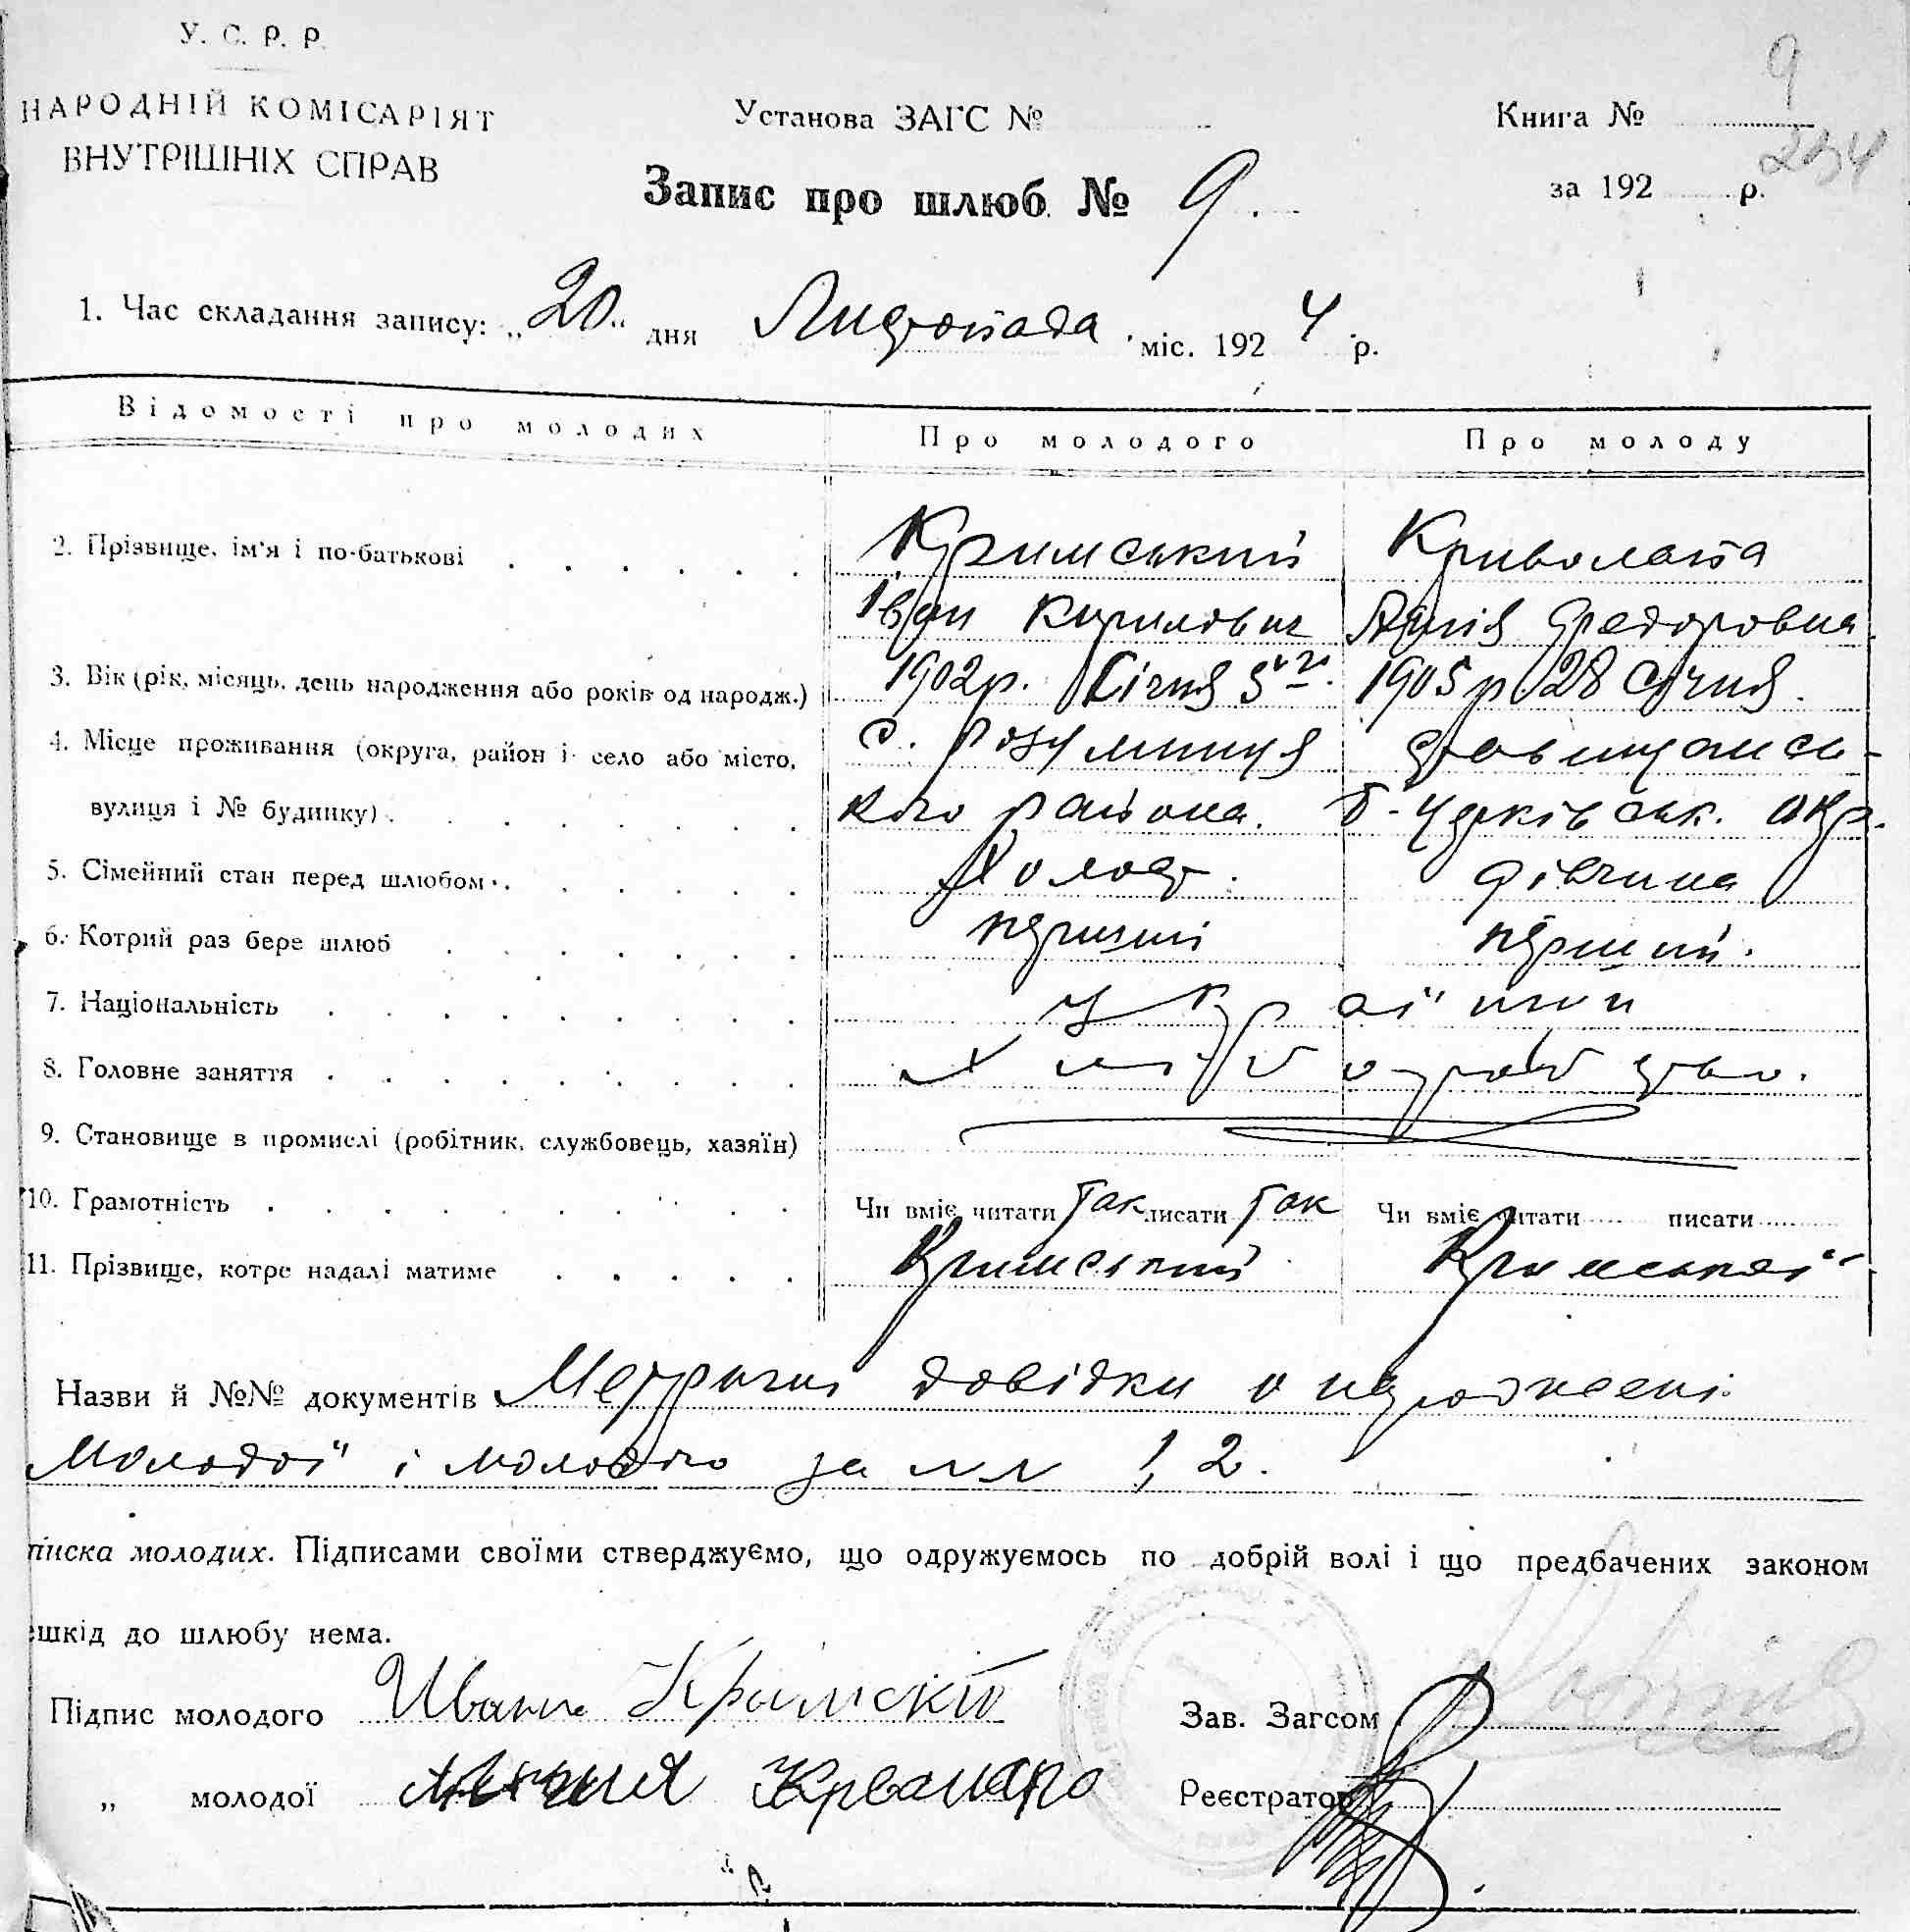 У. С. Р. Р.
НАРОДНІЙ КОМІСАРІЯТ
ВНУТРІШНІХ СПРАВ
Установа ЗАГС №
Книга № 9
234
за 192 р.
Запис про шлюб № 9.
1. Час складання запису: „20“ дня Листопада міс. 1924 р.
Відомості про молодих Про молодого Про молоду
2. Прізвище, ім'я і по-батькові Кримський Криволапа
Іван Кирилович Федоровна.
3. Вік (рік, місяць, день народження або років од народж.) 1902р. Січня 5го. 1905 р 28 Січня.
4. Місце проживання (округа, район і село або місто, с. Розумниця Ставищансь-
вулиця і № будинку). кого района. Б-Церківськ. окр.
5. Сімейний стан перед шлюбом. Холост. дівчина
6. Котрий раз бере шлюб перший перший.
7. Національність українци
8. Головне заняття Хліборобство.
9. Становище в промислі (робітник, службовець, хазяїн)
10. Грамотність Чи вміє читати Так писати Так Чи вміє читати писати
11. Прізвище, котре надалі матиме Кримський Кримської
Назви й №№ документів Метричні довідки о народжені
Молодої і молодого за №№ 1, 2.
писка молодих. Підписами своїми стверджуємо, що одружуємось по добрій волі і що предбачених законом
ешкід до шлюбу нема.
Підпис молодого Иванъ Крымскій
Зав. Загсом
„ молодої
Реєстратор